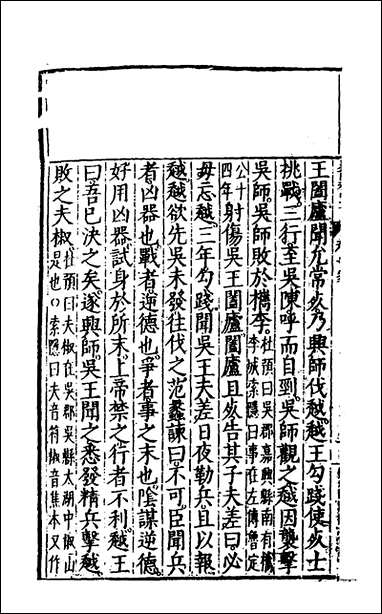 王闔廬聞允常死乃興師伐越越王勾踐使死士
挑戰三行至吳陳呼而自剄吳師觀之越因襲擊
吳師吳師敗於檇李杜預曰吳郡嘉興縣南有檇李城索隱曰事在左傳魯定
公十四年射傷吳王闔廬闔廬且死告其子夫差曰必
毋忘越三年勾踐聞吳王夫差日夜勒兵且以報
越越欲先吳未發往伐之范蠡諫曰不可臣聞兵
者凶器也戰者逆德也爭者事之末也陰謀逆德
好用凶器試身於所末上帝禁之行者不利越王
曰吾已決之矣遂興師吳王聞之悉發精兵擊越
敗之夫椒杜預曰夫椒在吳郡吳縣太湖中椒山是也索隱曰夫音符椒音焦本又作